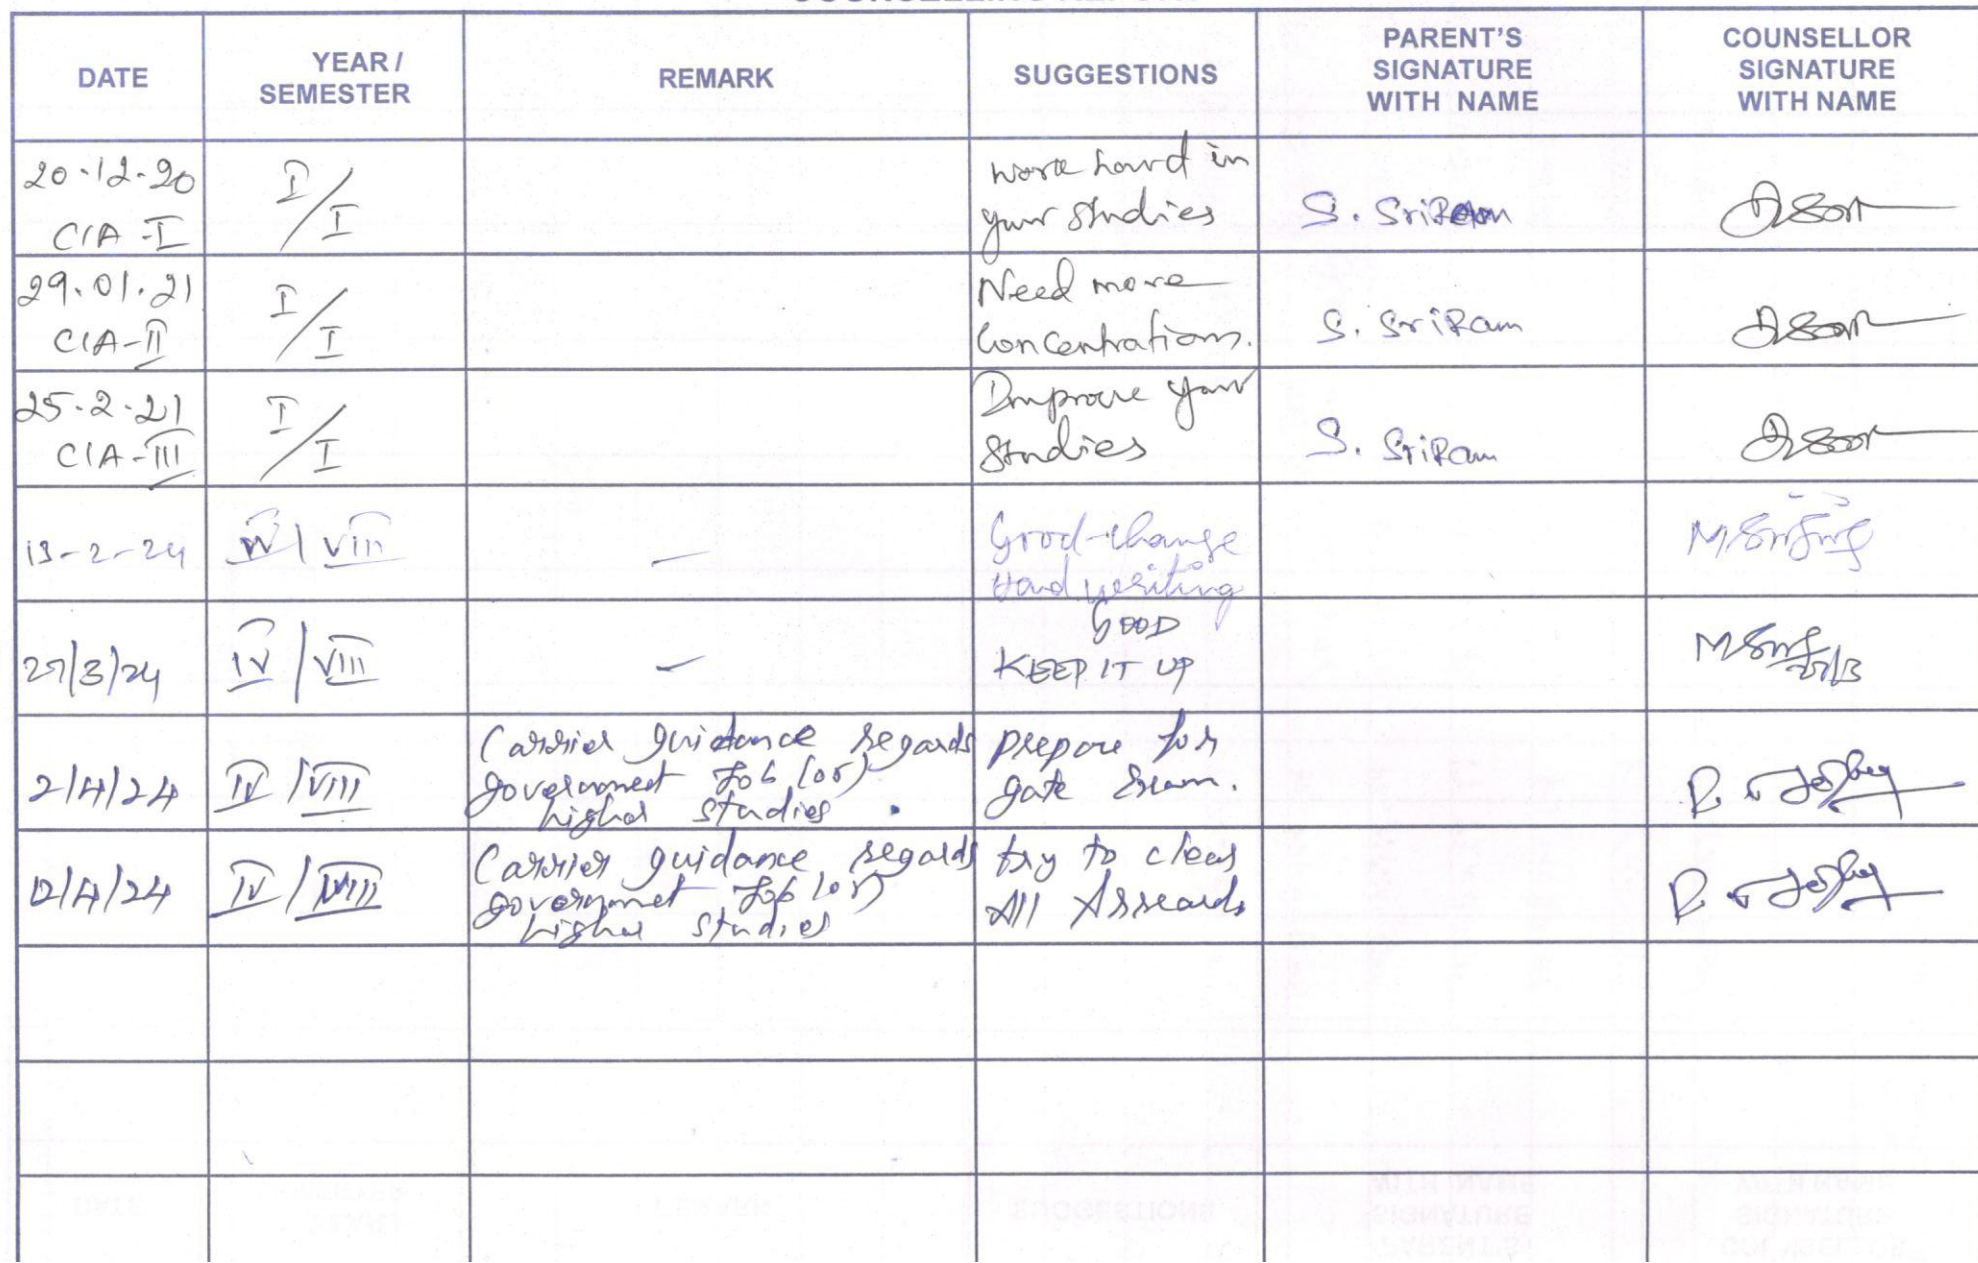 DATE
YEAR /
SEMESTER
REMARK
SUGGESTIONS
PARENT'S
SIGNATURE
WITH NAME
COUNSELLOR
SIGNATURE
WITH NAME
20-12-20
CIA-I
I/I
work hard in
your studies
S. SriRam
29.01.21
CIA-II
I/I
Need more
Concentrations.
S. SriRam
25-2-21
CIA-III
I/I
Improve your
Studies
S. SriRam
13-2-24
IV | VIII
—
Good-change
Hand writing
27/3/24
IV / VIII
—
GOOD
KEEP IT UP
27/3
2/4/24
IV / VIII
Carrier guidance regards
government Job (or)
higher studies.
prepare for
gate Exam.
12/4/24
IV / VIII
Carrier guidance regards
government Job (or)
higher studies
try to clear
All Arrears